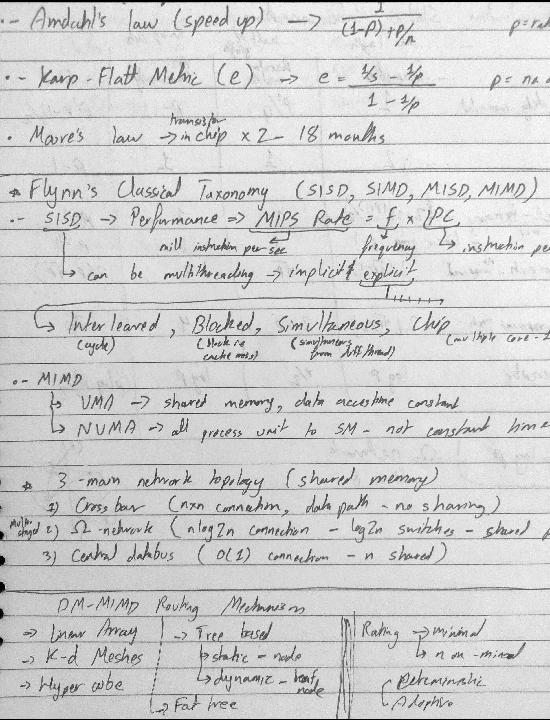 ·- Amdahl's law (speed up) → 1 / ((1-P) + P/n) p=
·- Karp-Flatt Metric (e) → e = (1/s - 1/p) / (1 - 1/p) p= no.
· Moore's law → transistor in chip × 2 - 18 months
* Flynn's Classical Taxonomy (SISD, SIMD, MISD, MIMD)
·- SISD → Performance ⇒ MIPS Rate = f × IPC
mill instruction per sec frequency ↳ instruction per
↳ can be multithreading → implicit & explicit
Interleaved, Blocked, Simultaneous, Chip
(cycle) (block ie cache miss) (simultaneous from diff thread) (multiple core -
·- MIMD
↳ UMA → shared memory, data access time constant
↳ NUMA → all process unit to SM - not constant time
* 3-main network topology (shared memory)
1) Cross bar (nxn connection, data path - no sharing)
2) Ω-network (nlog2n connection - log2n switches - shared
3) Central databus (O(1) connection - n shared)
DM-MIMD Routing Mechanism
→ Linear Array → Tree based Rating → minimal
→ K-d Meshes ↳ static - node ↳ non-minal
→ Hyper cube ↳ dynamic - leaf node Deterministic
↳ Fat tree Adaptive